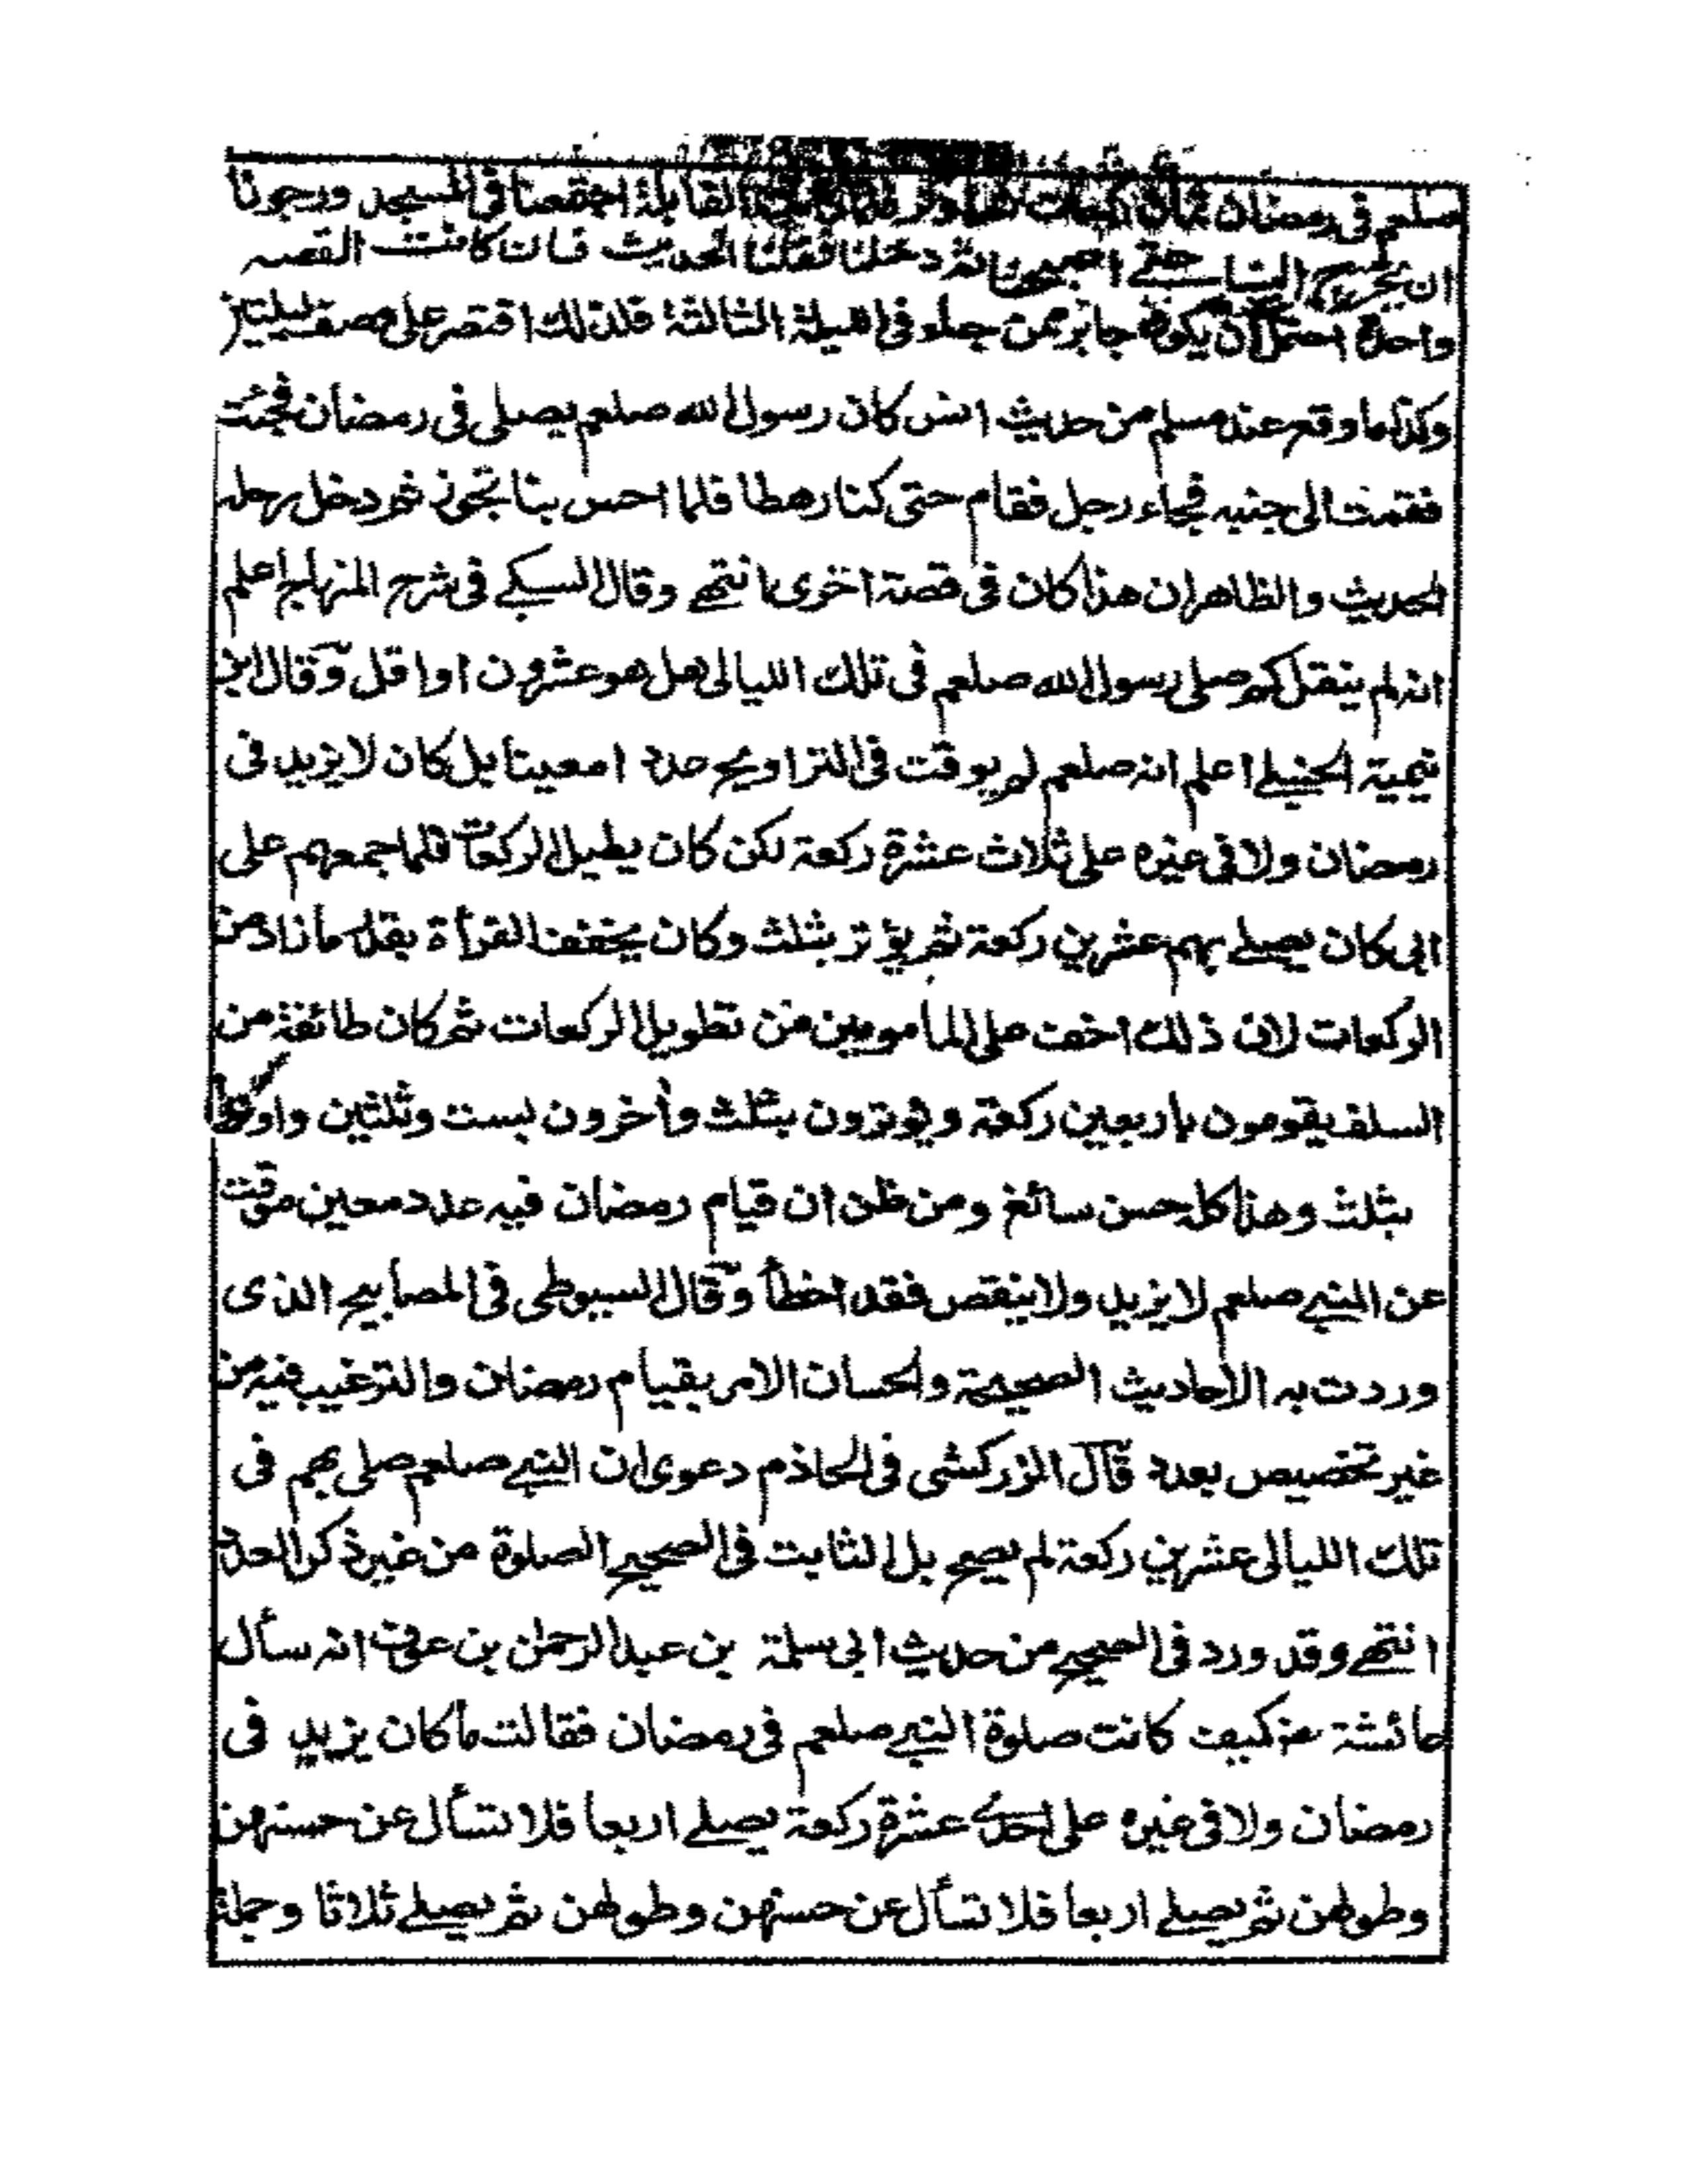 صلعم فى رمضان ثمان ركعات القابلة اجتمعنا فى المسجد ورجونا
ان يخرج الينا حتى اصبحنا ثم دخلنا فقلنا الحديث فان كانت القصه
واحدة احتمل ان يكون جابر ممن جاء فى الليلة الثالثة فلذلك اقتصر على وصف ليلتين
وكذا ما وقع عند مسلم من حديث انس كان رسول الله صلعم يصلى فى رمضان فجئت
فقمت الى جنبه فجاء رجل فقام حتى كنا رهطا فلما احس بنا تجوز ثم دخل رحله
الحديث والظاهر ان هذا كان فى قصة اخرى انتهى وقال السبكے فى شرح المنهاج اعلم
انه لم ينقل كم صلى رسول الله صلعم فى تلك الليالى هل هو عشرون او اقل وقال ابن
تيمية الحنبلے اعلم انه صلعم لم يوقت فى التراويح عددا معينا بل كان لا يزيد فى
رمضان ولا فى غيره على ثلاث عشرة ركعة لكن كان يطيل الركعات فلما جمعهم على
ابى كان يصلے بهم عشرين ركعة ثم يؤتر بثلث وكان يخفف القرأة بقدر ما زاد من
الركعات لان ذلك اخف على المأمومين من تطويل الركعات ثم كان طائفة من
السلف يقومون باربعين ركعة ويوترون بثلث وأخرون بست وثلثين واوتروا
بثلث وهذا كله حسن سائغ ومن ظن ان قيام رمضان فيه عدد معين موقت
عن النبے صلعم لا يزيد ولا ينقص فقد اخطأ وقال السيوطى فى المصابيح الذى
وردت به الاحاديث الصحيحة والحسان الامر بقيام رمضان والترغيب فيه من
غير تخصيص بعدد قال الزركشى فى الخادم دعوى ان النبے صلعم صلى بهم فى
تلك الليالى عشرين ركعة لم يصح بل الثابت فى الصحيح الصلوة من غير ذكر العدد
انتهے وقد ورد فى الصحيح من حديث ابى سلمة بن عبد الرحمٰن بن عوف انه سأل
عائشة كيف كانت صلوة النبے صلعم فى رمضان فقالت ما كان يزيد فى
رمضان ولا فى غيره على احدى عشرة ركعة يصلے اربعا فلا تسأل عن حسنهن
وطولهن ثم يصلے اربعا فلا تسأل عن حسنهن وطولهن ثم يصلے ثلاثا وجملة